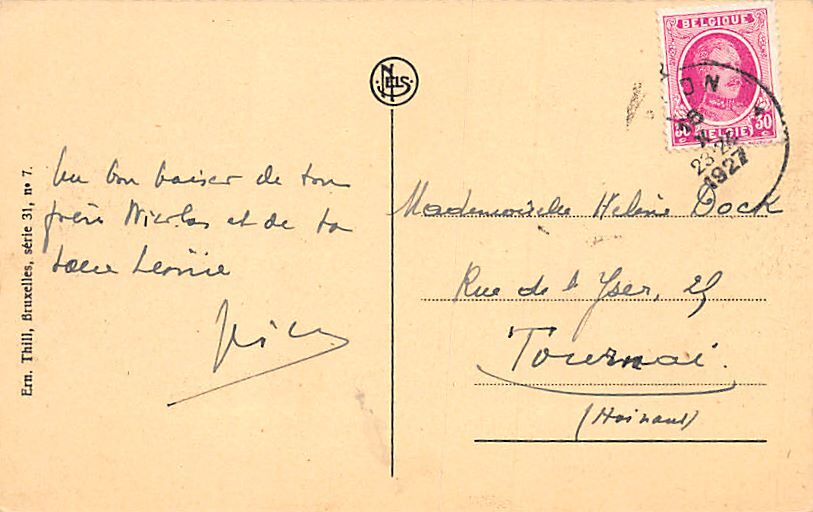 Ern. Thill, Bruxelles, série 31, n° 7.
NELS
Un bon baiser de ton
frère Nicolas et de ta
sœur Léonie
BELGIQUE
30 30
BELGIË
ON
23-24
1927
Mademoiselle Hélène Dock
Rue de l'Yser, 25
Tournai.
(Hainaut)